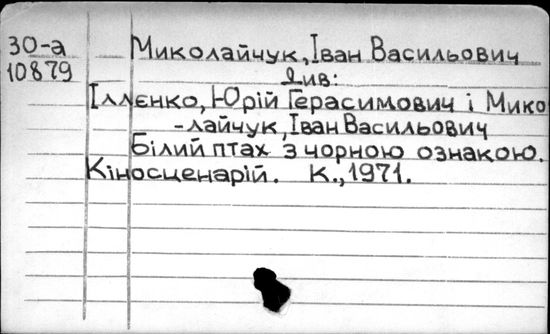 30-а
10879
Миколайчук, Іван Васильович
Див:
Іллєнко, Юрій Герасимович і Мико
-лайчук, Іван Васильович
Білий птах з чорною ознакою.
Кіносценарій. К., 1971.